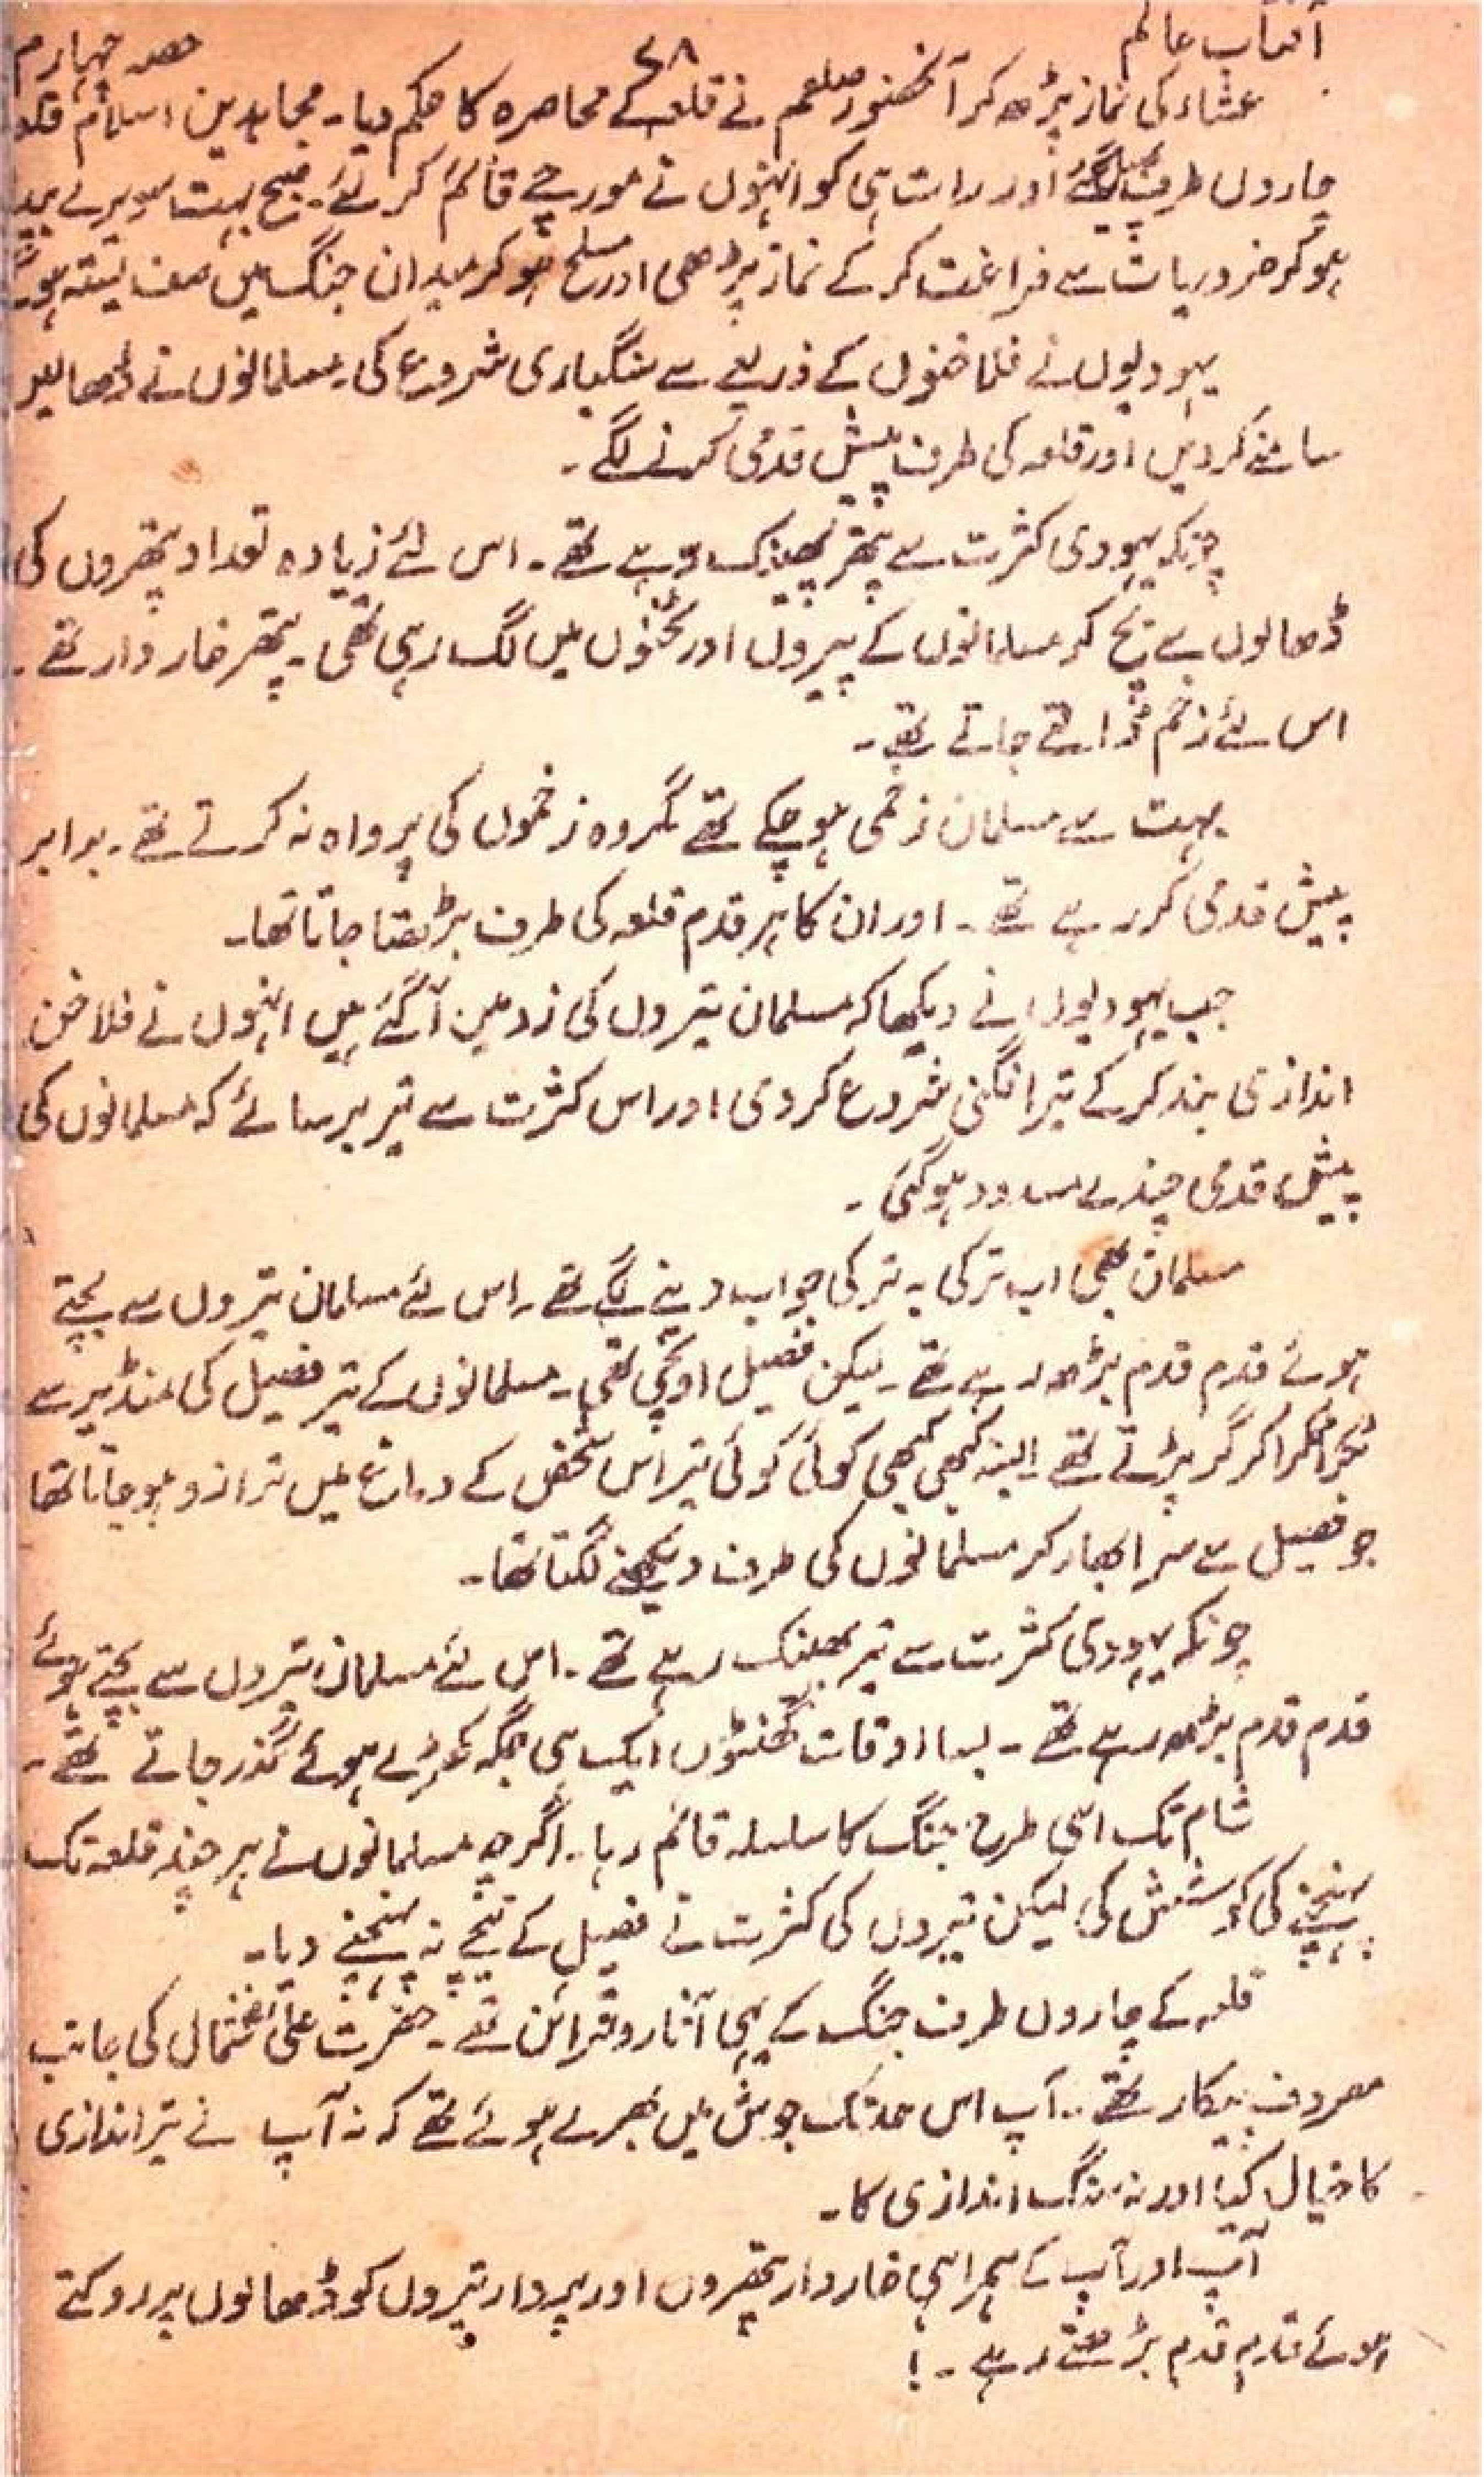 آفتاب عالم ۷۸ حصہ چہارم
عشاء کی نماز پڑھ کر آنحضور صلعم نے قلعہ کے محاصرہ کا حکم دیا۔ مجاہدین اسلام قلعہ
چاروں طرف پھیل گئے اور رات ہی کو انہوں نے مورچے قائم کر لئے۔ صبح بہت سویرے
ہو کر ضروریات سے فراغت کر کے نماز پڑھی اور مسلح ہو کر میدان جنگ میں صف بستہ ہو گئے
یہودیوں نے فلاخنوں کے ذریعے سے سنگباری شروع کی۔ مسلمانوں نے ڈھالیں
سامنے کر دیں اور قلعہ کی طرف پیش قدمی کرنے لگے۔
چونکہ یہودی کثرت سے پتھر پھینک رہے تھے۔ اس لئے زیادہ تعداد پتھروں کی
ڈھالوں سے بچ کر مسلمانوں کے پیروں اور ٹخنوں میں لگ رہی تھی۔ پتھر خار دار تھے۔
اس لئے زخم ڈالتے جاتے تھے۔
بہت سے مسلمان زخمی ہو چکے تھے مگر وہ زخموں کی پرواہ نہ کرتے تھے۔ برابر
پیش قدمی کر رہے تھے۔ اور ان کا ہر قدم قلعہ کی طرف بڑھتا جاتا تھا۔
جب یہودیوں نے دیکھا کہ مسلمان تیروں کی زد میں آ گئے ہیں انہوں نے فلاخن
اندازی بند کر کے تیر افگنی شروع کر دی اور اس کثرت سے تیر برسائے کہ مسلمانوں کی
پیش قدمی چندے مسدود ہو گئی۔
مسلمان بھی اب ترکی بہ ترکی جواب دینے لگے تھے۔ اس لئے مسلمان تیروں سے بچتے
ہوئے قدم قدم بڑھ رہے تھے۔ لیکن فصیل اونچی تھی۔ مسلمانوں کے تیر فصیل کی منڈیر سے
ٹکرا کر گر پڑتے تھے البتہ کبھی کبھی کوئی کوئی تیر اس شخص کے دماغ میں ترازو ہو جاتا تھا
جو فصیل سے سر ابھار کر مسلمانوں کی طرف دیکھنے لگتا تھا۔
چونکہ یہودی کثرت سے تیر پھینک رہے تھے۔ اس لئے مسلمان تیروں سے بچتے ہوئے
قدم قدم بڑھ رہے تھے۔ بسا اوقات گھنٹوں ایک ہی جگہ کھڑے ہوئے گذر جاتے تھے۔
شام تک اسی طرح جنگ کا سلسلہ قائم رہا۔ اگرچہ مسلمانوں نے ہر چند قلعہ تک
پہنچنے کی کوشش کی لیکن تیروں کی کثرت نے فصیل کے نیچے نہ پہنچنے دیا۔
قلعہ کے چاروں طرف جنگ کے یہی آثار و قرائن تھے۔ حضرت علیؓ شمال کی جانب
مصروف پیکار تھے۔ آپ اس حد تک جوش میں بھرے ہوئے تھے کہ نہ آپ نے تیر اندازی
کا خیال کیا اور نہ سنگ اندازی کا۔
آپ اور آپ کے ہمراہی خار دار پتھروں اور پردار تیروں کو ڈھالوں پر روکتے
ہوئے قدم قدم بڑھتے رہے۔!